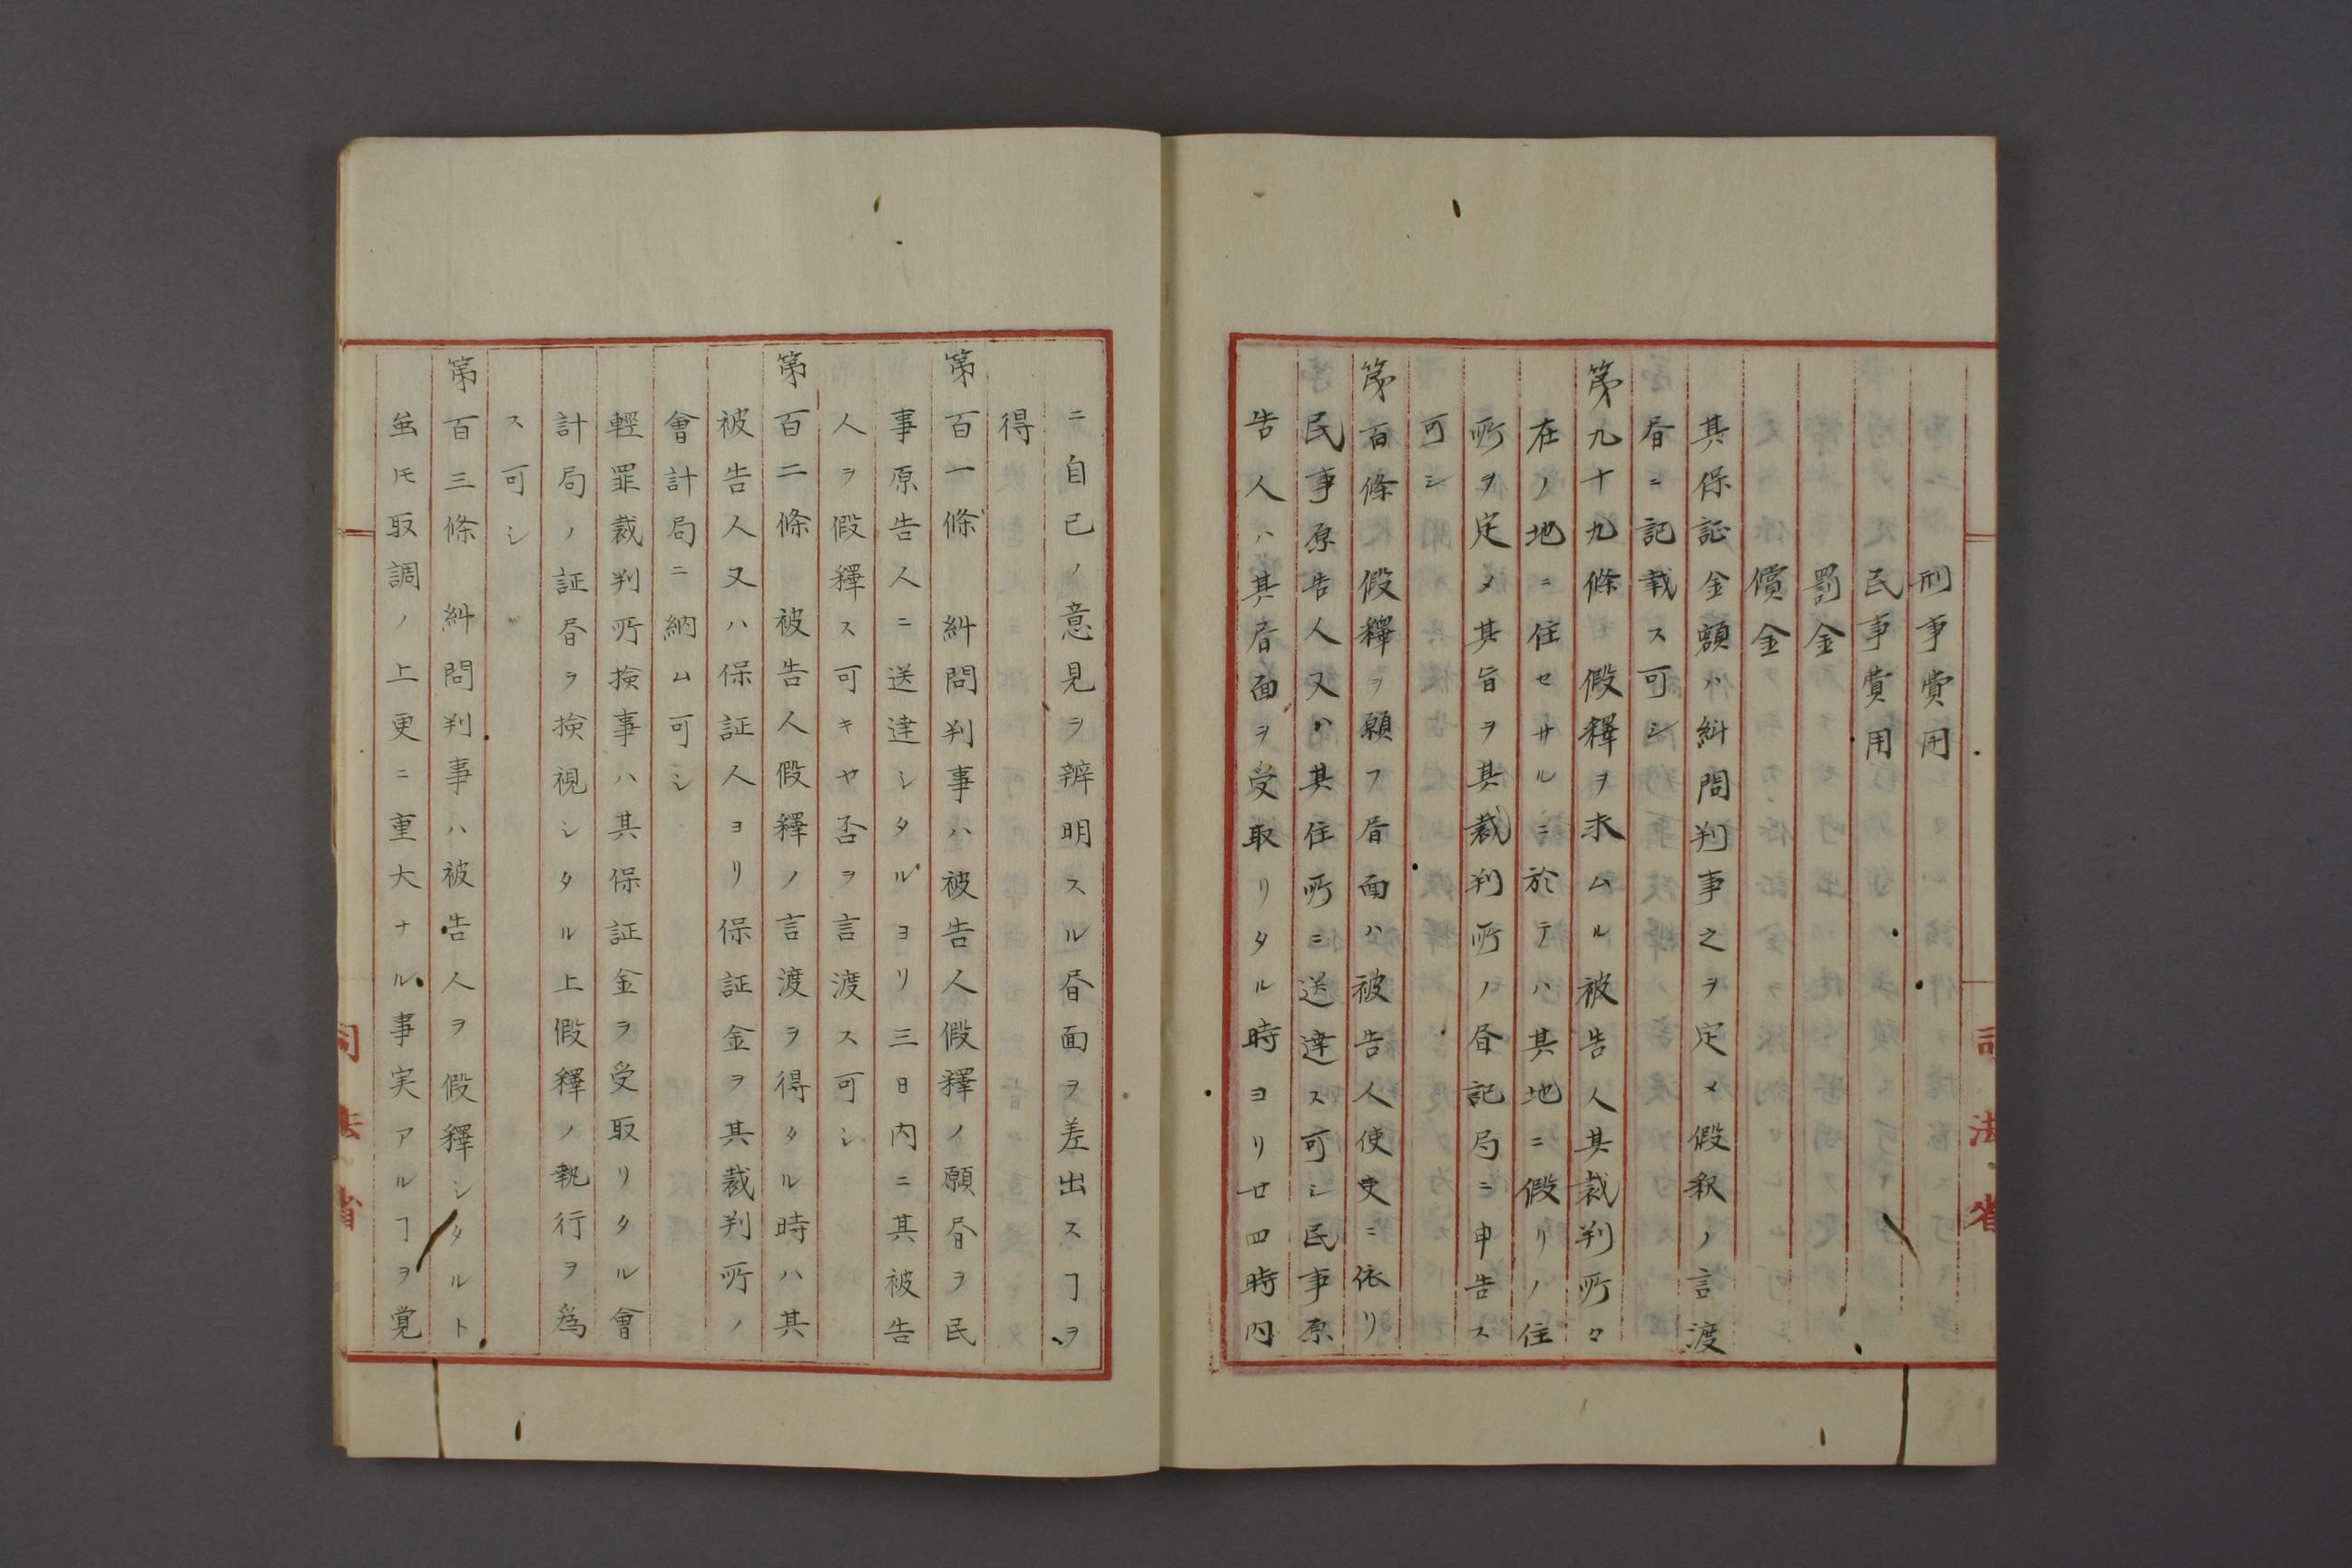 刑事賞用
民事賞用
罰金
償金
其保証金額ハ糾問判事之ヲ定メ假釈ノ言渡
昏ニ記載ス可シ
第九十九條　假釋ヲ求ムル被告人其裁判所々
在ノ地ニ住セサルニ於テハ其地ニ假リノ住
所ヲ定メ其旨ヲ其裁判所ノ昏記局ニ申告ス
可シ
第百條　假釋ヲ願フ昏面ハ被告人使吏ニ依リ
民事原告人又ハ其住所ニ送達ス可シ民事原
告人ハ其昏面ヲ受取リタル時ヨリ廿四時内
ニ自己ノ意見ヲ辨明スル昏面ヲ差出スヿヲ
得
第百一條　糾問判事ハ被告人假釋ノ願昏ヲ民
事原告人ニ送達シタルヨリ三日内ニ其被告
人ヲ假釋ス可キヤ否ヲ言渡ス可シ
第百二條　被告人假釋ノ言渡ヲ得タル時ハ其
被告人又ハ保証人ヨリ保証金ヲ其裁判所ノ
會計局ニ納ム可シ
輕罪裁判所撿事ハ其保証金ヲ受取リタル會
計局ノ証昏ヲ撿視シタル上假釋ノ執行ヲ爲
ス可シ
第百三條　糾問判事ハ被告人ヲ假釋シタルト
𧈧モ取調ノ上更ニ重大ナル事実アルヿヲ覚
司法省
司法省